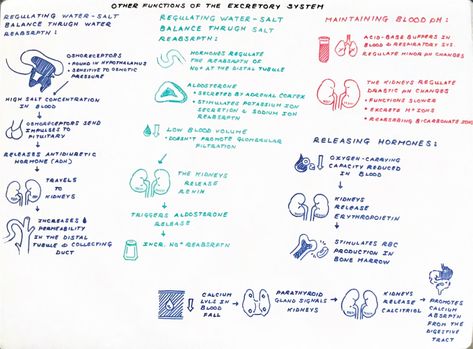 OTHER FUNCTIONS OF THE EXCRETORY SYSTEM
REGULATING WATER-SALT
BALANCE THRUGH WATER
REABSRPTN:
OSMORECEPTORS
• FOUND IN HYPOTHALAMUS
• SENSITIVE TO OSMOTIC
PRESSURE
HIGH SALT CONCENTRATION
IN BLOOD
OSMORECEPTORS SEND
IMPULSES TO
PITUITARY
RELEASES ANTIDIURETIC
HORMONE (ADH)
TRAVELS
TO
KIDNEYS
INCREASES
PERMEABILITY
IN THE DISTAL
TUBULE & COLLECTING
DUCT
REGULATING WATER-SALT
BALANCE THRUGH SALT
REABSRPTN:
HORMONES REGULATE
THE REABSRPTN OF
NA+ AT THE DISTAL TUBULE
ALDOSTERONE
• SECRETED BY ADRENAL CORTEX
• STIMULATES POTASSIUM ION
SECRETION & SODIUM ION
REABSRPTN
LOW BLOOD VOLUME
• DOESN'T PROMOTE GLOMERULAR
FILTRATION
THE KIDNEYS
RELEASE
RENIN
TRIGGERS ALDOSTERONE
RELEASE
INCR. NA+ REABSRPTN
MAINTAINING BLOOD PH:
ACID-BASE BUFFERS IN
BLOOD & RESPIRATORY SYS.
REGULATE MINOR PH CHANGES
THE KIDNEYS REGULATE
DRASTIC PH CHANGES
• FUNCTIONS SLOWER
• EXCRETE H+ IONS
• REABSRBING BICARBONATE IONS
RELEASING HORMONES:
OXYGEN-CARRYING
CAPACITY REDUCED
IN BLOOD
KIDNEYS
RELEASE
ERYTHROPOIETIN
STIMULATES RBC
PRODUCTION IN
BONE MARROW
CALCIUM
LVLS IN
BLOOD
FALL
PARATHYROID
GLAND SIGNALS
KIDNEYS
KIDNEYS
RELEASE
CALCITRIOL
PROMOTES
CALCIUM
ABSRPTN
FROM THE
DIGESTIVE
TRACT